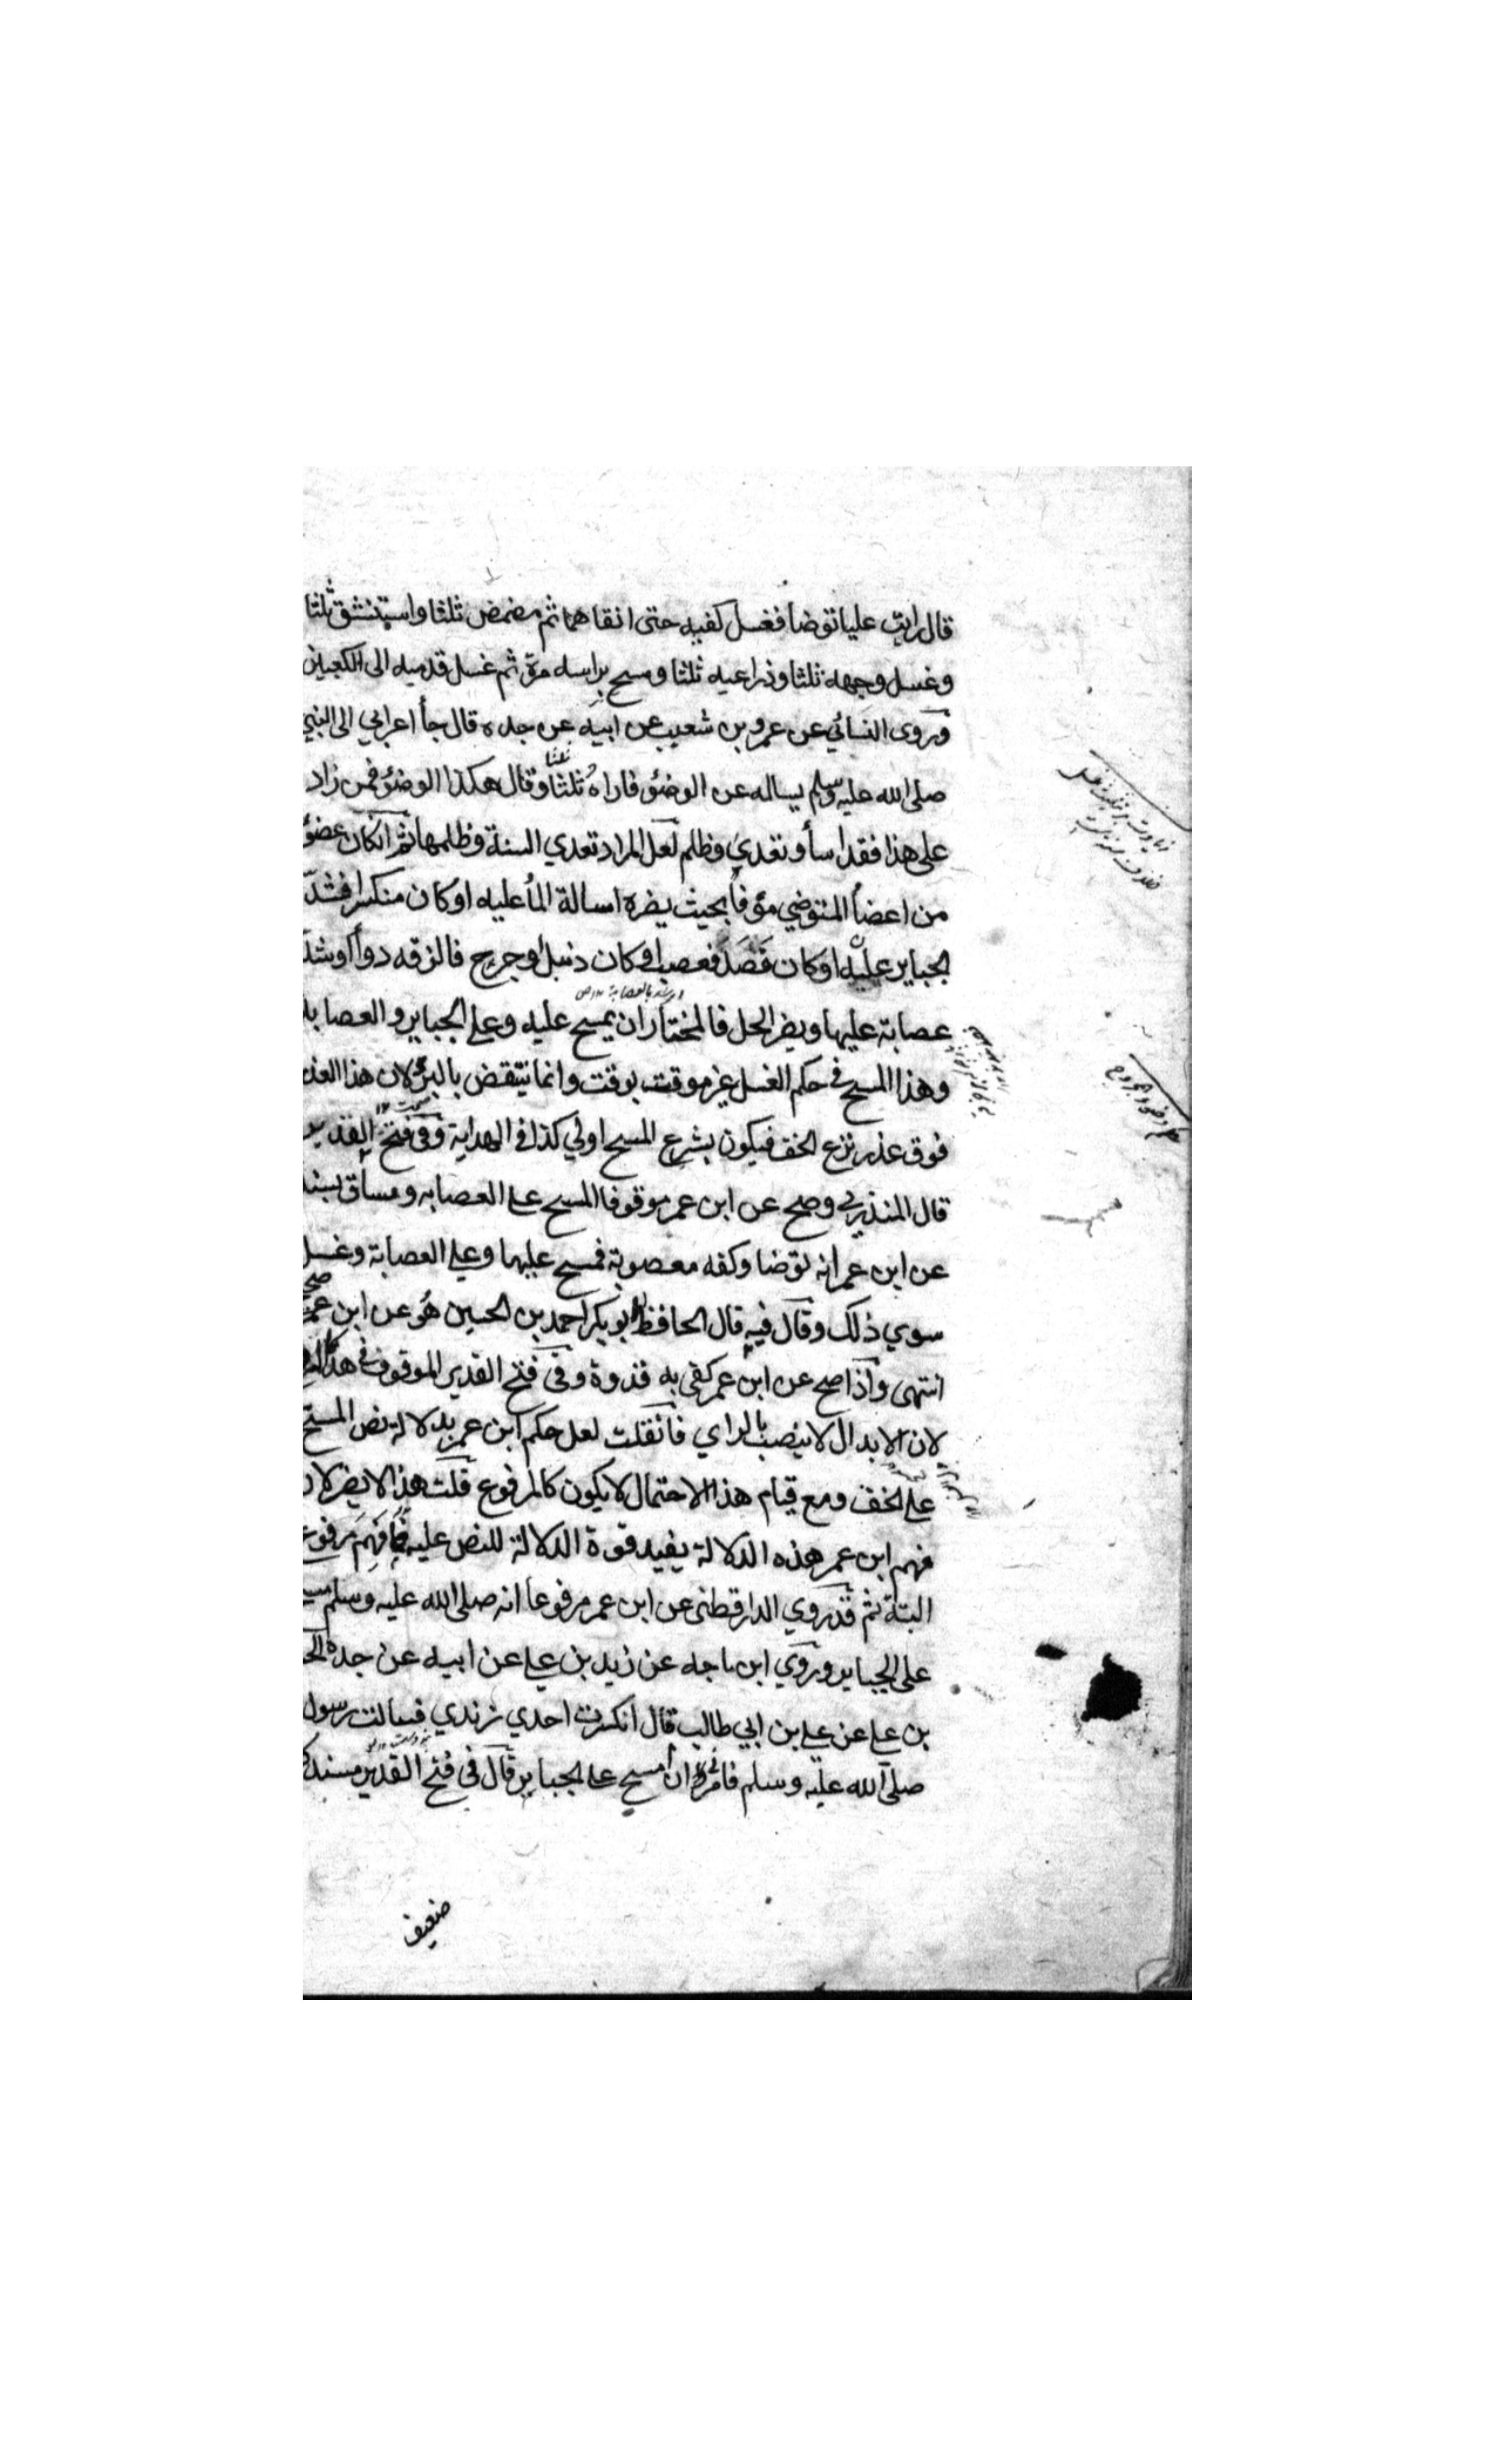 قال رايت عليا توضا فغسل كفيه حتى انقاهما ثم مضمض ثلثا واستنشق ثلثا
وغسل وجهه ثلثا وذراعيه ثلثا ومسح براسه مرة ثم غسل قدميه الى الكعبين
وروى النسائي عن عمرو بن شعيب عن ابيه عن جده قال جأ اعرابي الى النبي
صلى الله عليه وسلم يساله عن الوضؤ فاراه ثلثا ثلثا وقال هكذا الوضؤ فمن زاد
على هذا فقد اسأ وتعدي وظلم لعل المراد تعدي السنة وظلمها ثم انكان عضؤ
من اعضأ المتوضي مؤفا بحيث يضره اسالة المأ عليه او كان منكسرا فشد
الجباير عليه او كان فصد فعصب او كان دنبل او جريح فالزقه دوأ او شد
عصابة عليها ويضر الحل فالمختار ان يمسح عليه وعلي الجباير والعصابة
وهذا المسح في حكم الغسل غير موقت بوقت وانما ينتقض بالبرؤ لان هذا العذر
فوق عذر نزع الخف فيكون بشرع المسح اولي كذا في الهداية وفي فتح القدير
قال المنذري وصح عن ابن عمر موقوفا المسح علي العصابه وساق بسنده
عن ابن عمر انه توضا وكفه معصوبة فمسح عليها وعلي العصابة وغسل
سوي ذلك وقال فيه قال الحافظ ابو بكر احمد بن الحسين هو عن ابن عمر صح
انتهى واذا صح عن ابن عمر كفى به قدوة وفي فتح القدير الموقوف في هذا
لان الابدال لا ينصب بالراي فانقلت لعل حكم ابن عمر بدلالة نص المسح
علي الخف ومع قيام هذا الاحتمال لا يكون كالمرفوع قلت هذا لا يضر لان
فهم ابن عمر هذه الدلالة يفيد قوة الدلالة للنص عليه فما فهم مرفوع
البتة ثم قد روي الدارقطني عن ابن عمر مرفوعا انه صلى الله عليه وسلم
على الجباير وروي ابن ماجه عن زيد بن علي عن ابيه عن جده
بن علي عن علي بن ابي طالب قال انكسرت احدي زندي فسالت رسول
صلى الله عليه وسلم فامرني ان امسح علي الجباير قال في فتح القدير مسند
ضعيف